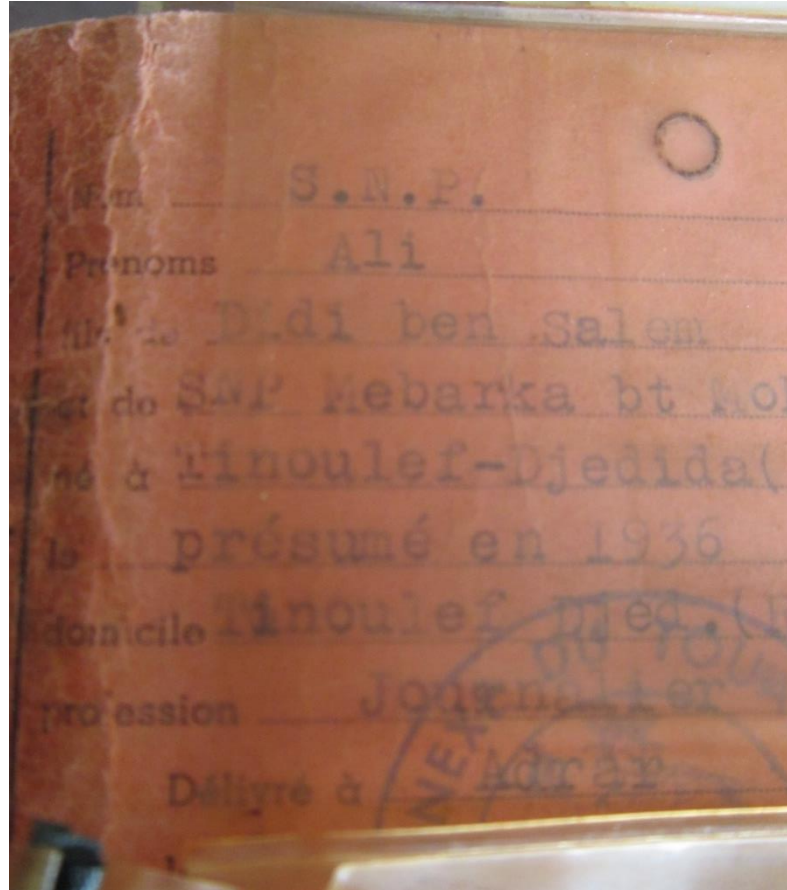 Nom S.N.P.
Prénoms Ali
fils de Didi ben Salem
et de SNP Mebarka bt Moh
né à Tinoulef-Djedida(
le présumé en 1936
domicile Tinoulef Djed.(
profession Journalier
Délivré à Adrar
NEXE DU TOU